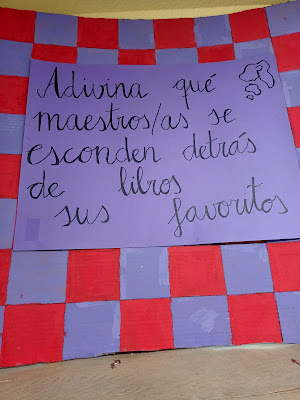 Adivina qué
maestros/as se
esconden detrás
de libros
sus favoritos